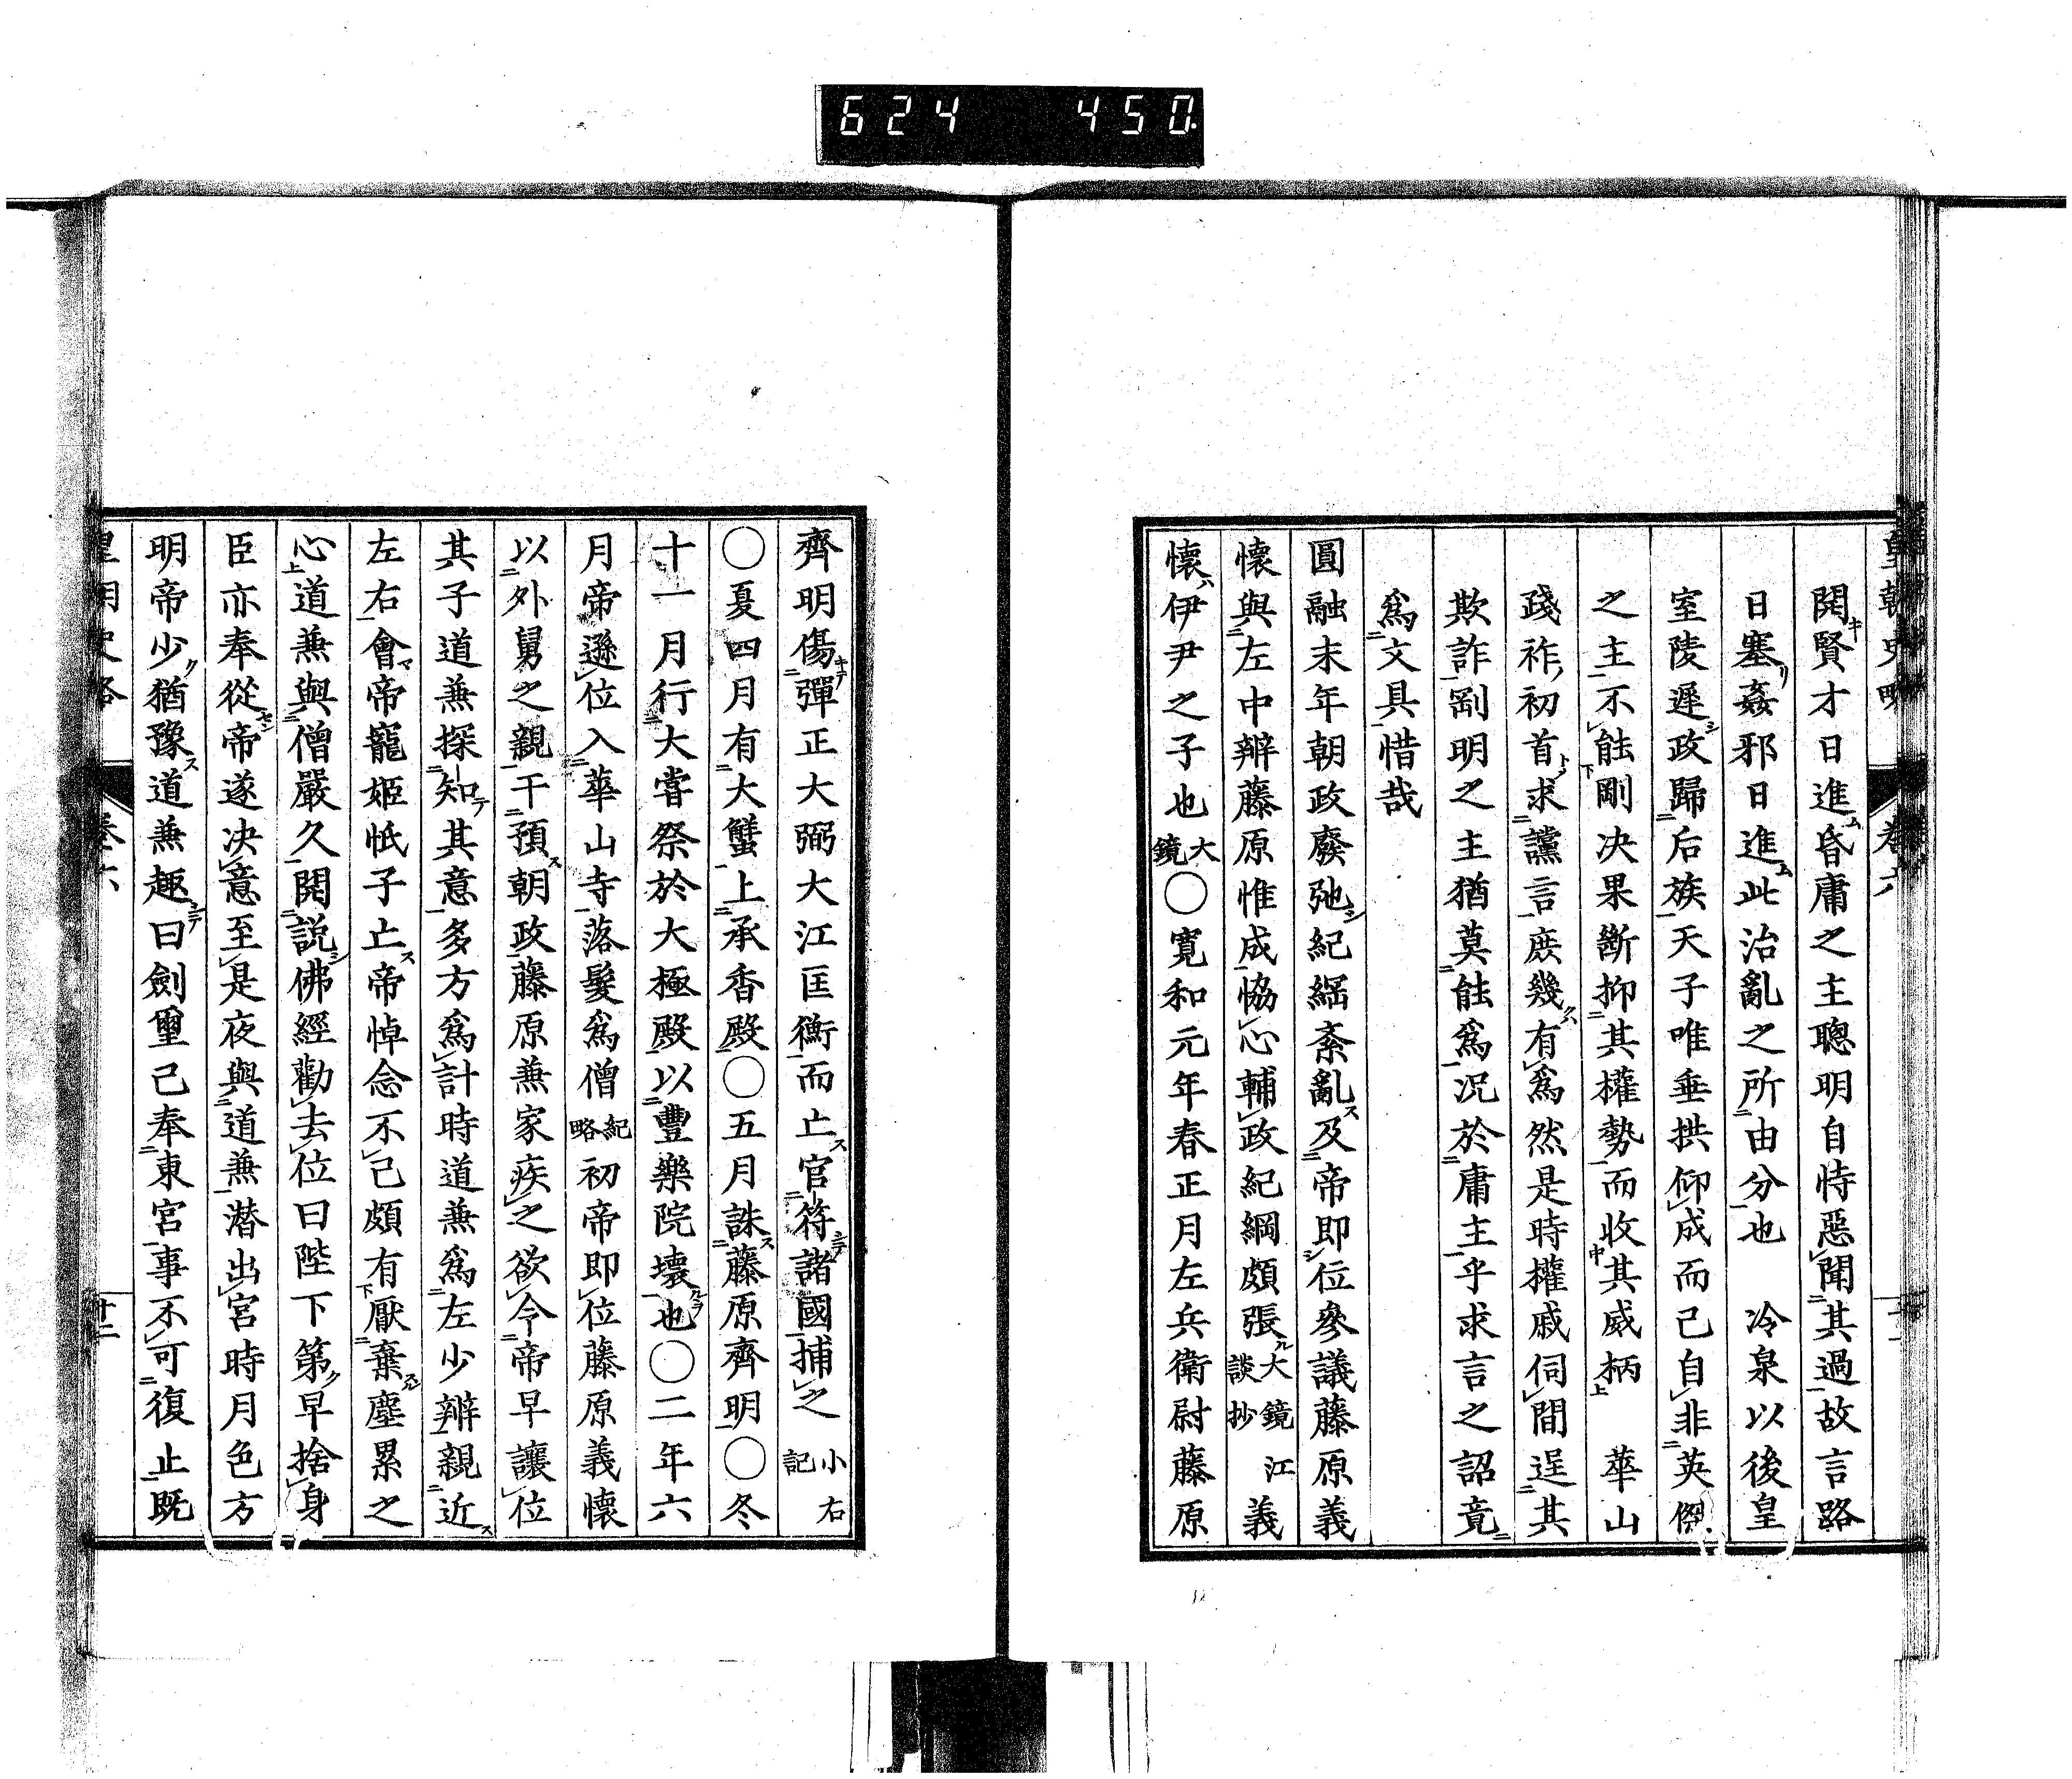 624 450
皇朝史略 卷六
開賢才日進昏庸之主聰明自恃惡聞其過故言路
日塞姦邪日進此治亂之所由分也 冷泉以後皇
室陵遲政歸后族天子唯垂拱仰成而已自非英傑
之主不能剛決果斷抑其權勢而收其威柄 華山
踐祚初首求讜言庶幾有爲然是時權戚伺間逞其
欺詐剛明之主猶莫能爲況於庸主乎求言之詔竟
爲文具惜哉
圓融末年朝政廢弛紀綱紊亂及帝即位參議藤原義
懷與左中辨藤原惟成協心輔政紀綱頗張大鏡江談抄義
懷伊尹之子也大鏡〇寛和元年春正月左兵衛尉藤原
齊明傷彈正大弼大江匡衡而亡官符諸國捕之小右記
〇夏四月有大蟹上承香殿〇五月誅藤原齊明〇冬
十一月行大嘗祭於大極殿以豐樂院壞也〇二年六
月帝遜位入華山寺落髮爲僧紀略初帝即位藤原義懷
以外舅之親干預朝政藤原兼家疾之欲令帝早讓位
其子道兼探知其意多方爲計時道兼爲左少辨親近
左右會帝寵姬恹子亡帝悼念不已頗有厭棄塵累之
心道兼與僧嚴久開説佛經勸去位曰陛下第早捨身
臣亦奉從帝遂決意至是夜與道兼潜出宮時月色方
明帝少猶豫道兼趣曰劍璽已奉東宮事不可復止既
皇朝史略 卷六 十二